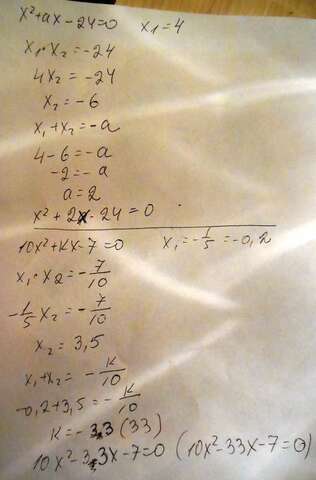 x²+ax-24=0 x₁=4
x₁·x₂=-24
4x₂=-24
x₂=-6
x₁+x₂=-a
4-6=-a
-2=-a
a=2
x²+2x-24=0
10x²+kx-7=0 x₁=-1/5=-0,2
x₁·x₂=-7/10
-1/5x₂=-7/10
x₂=3,5
x₁+x₂=-k/10
-0,2+3,5=-k/10
k=-3,3(33)
10x²-3,3x-7=0 (10x²-33x-7=0)